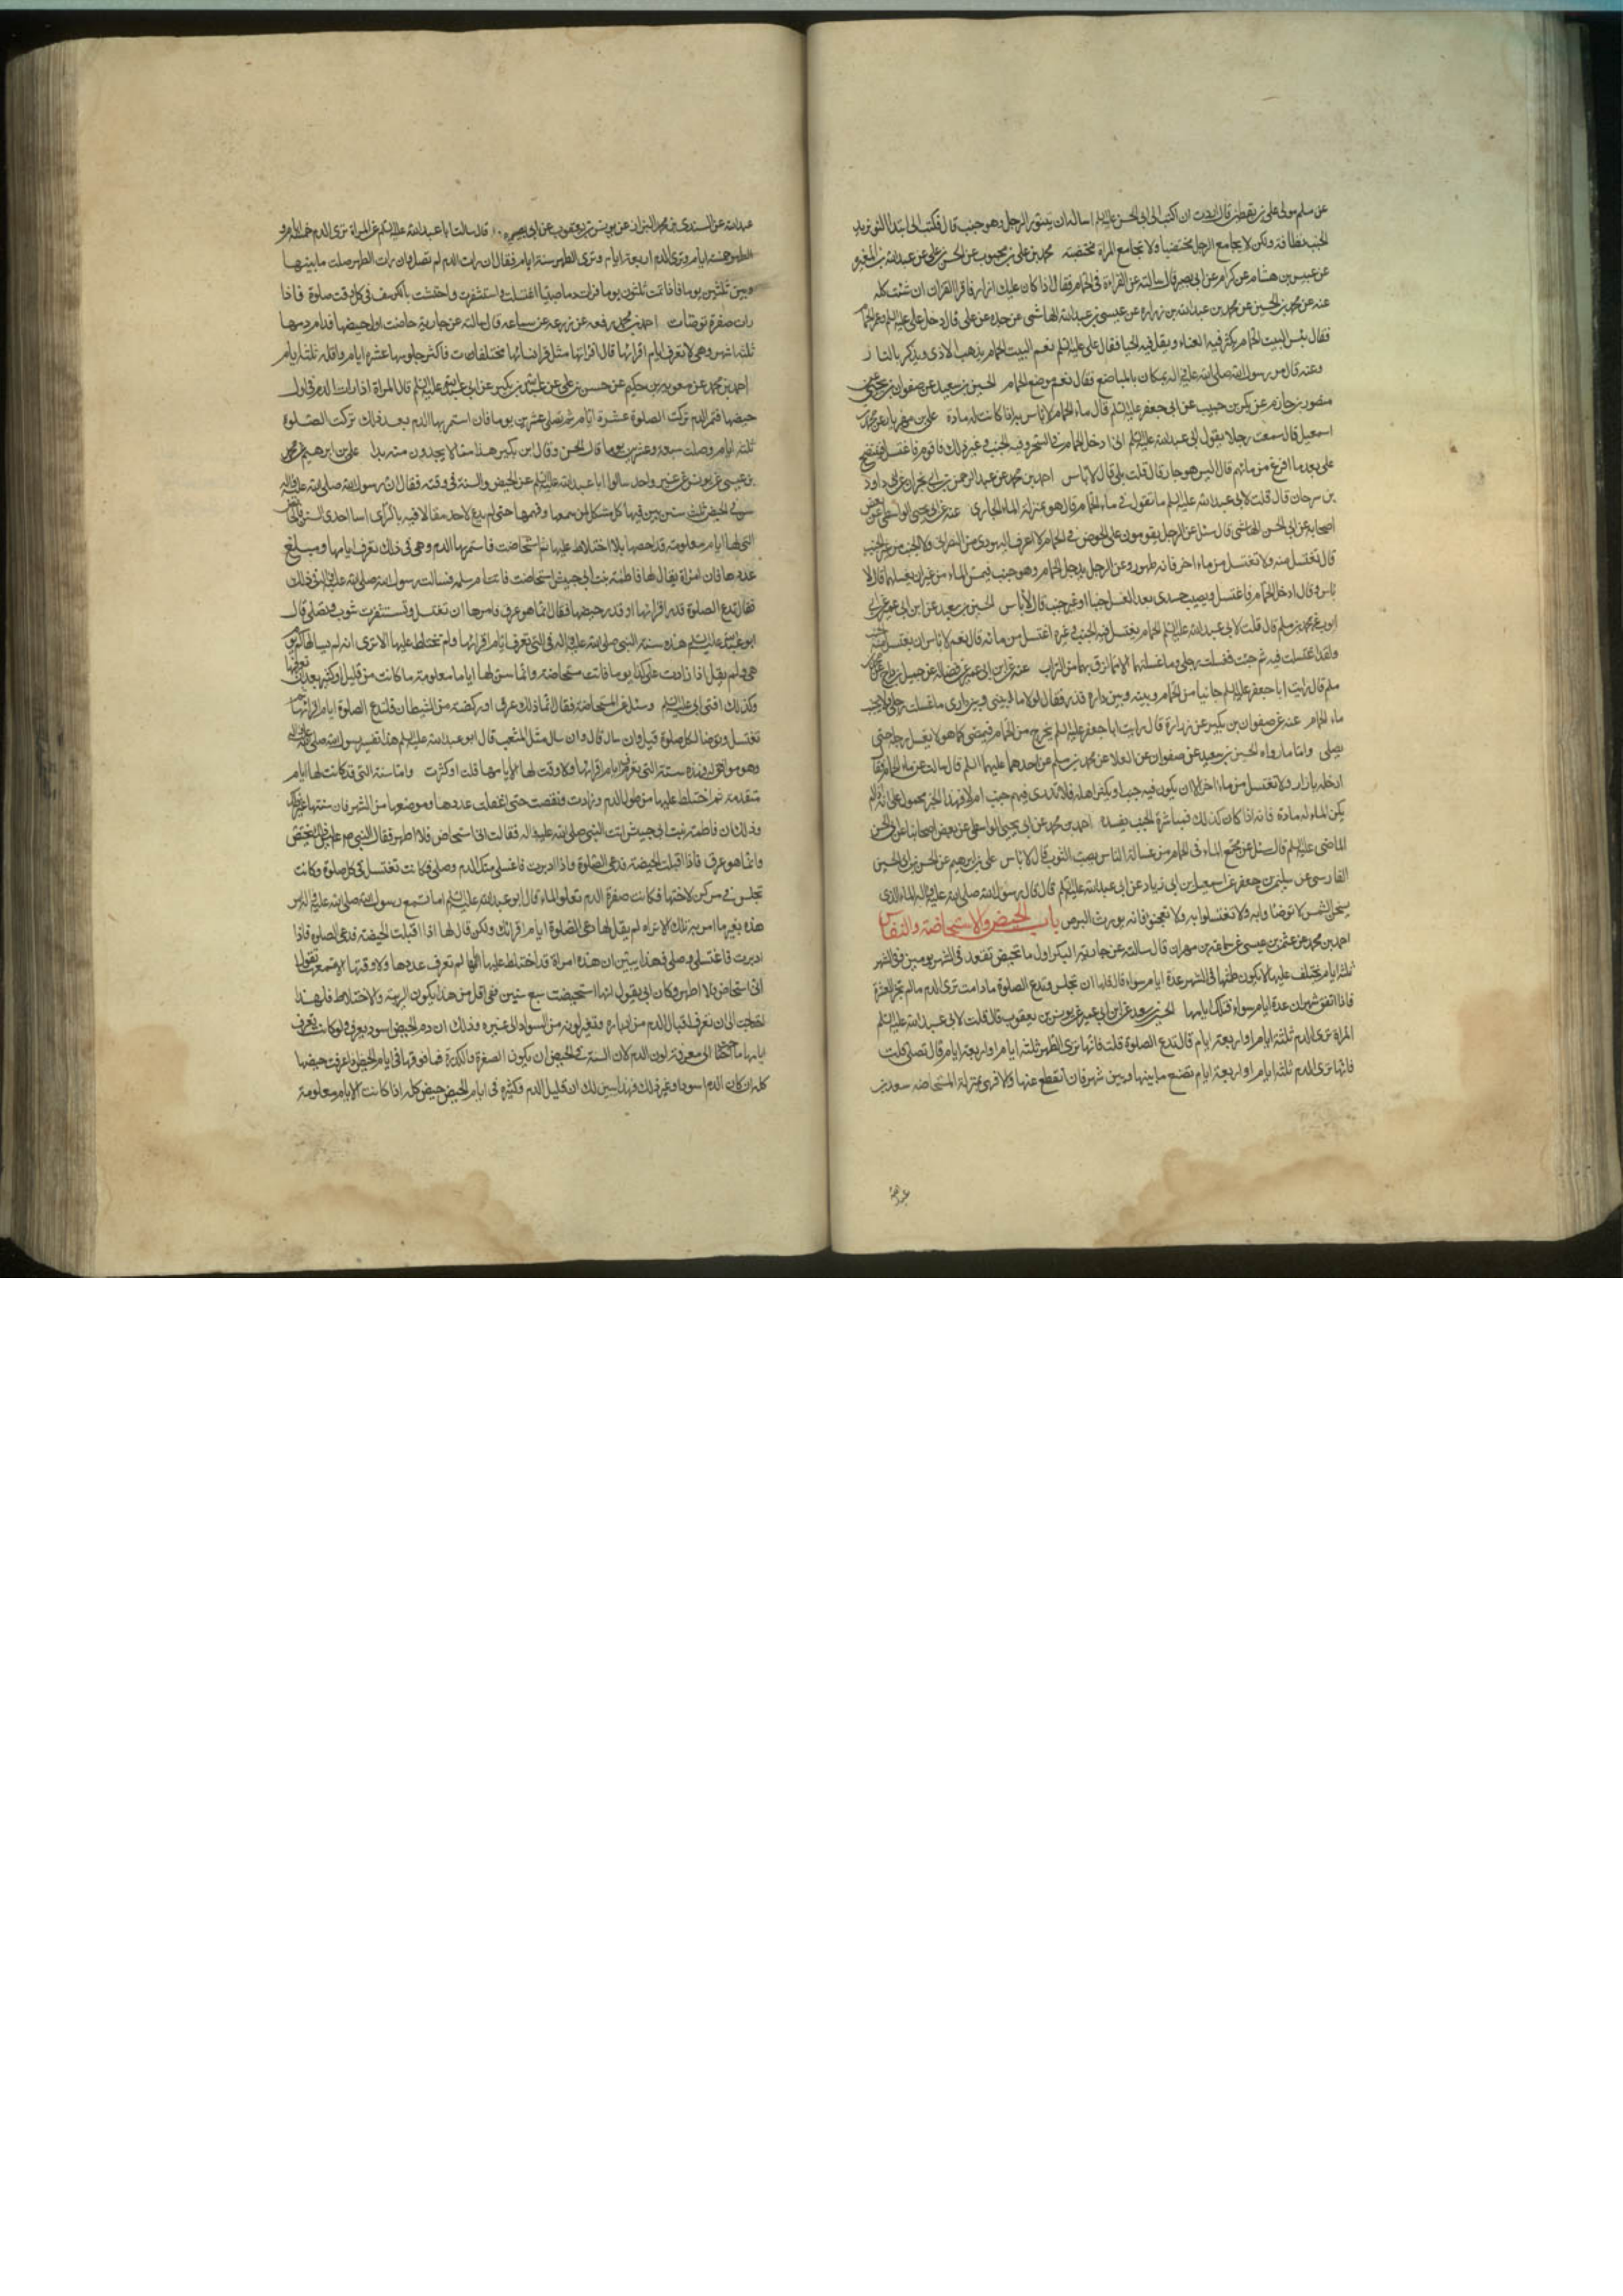 عن سلم مولى علي بن يقطين قال اردت ان اكتب الى ابي الحسن عليه السلم اساله ان يتنور الرجل وهو جنب قال فكتب الي ابتداء النورة تزيد
الجنب نظافة ولكن لا يجامع الرجل مختضبا ولا تجامع المراة مختضبة محمد بن علي بن محبوب عن الحسن بن علي عن عبد الله بن المغيرة
عن عبيس بن هشام عن كرام عن ابي بصير قال سالته عن القراءة في الحمام فقال اذا كان عليك ازار فاقرا القران ان شئت كله
عنه عن محمد بن الحسين عن محمد بن عبد الله بن زرارة عن عيسى بن عبد الله الهاشمي عن جده عن علي قال دخل علي عليه السلم وعمر الحمام
فقال بئس البيت الحمام يكثر فيه العناء ويقل فيه الحيا فقال علي عليه السلم نعم البيت الحمام يذهب الاذى ويذكر بالنار
وعنه قال مر رسول الله صلى الله عليه واله بمكان بالمباضع فقال نعم موضع الحمام الحسين بن سعيد عن صفوان بن يحيى عن
منصور بن حازم عن بكر بن حبيب عن ابي جعفر عليه السلم قال ماء الحمام لا باس به اذا كانت له مادة علي بن مهزيار عن محمد بن
اسمعيل قال سمعت رجلا يقول لابي عبد الله عليه السلم اني ادخل الحمام في السحر وفيه الجنب وغير ذلك فاقوم فاغتسل فينتضح
علي بعد ما افرغ من مائهم قال اليس هو جار قال قلت بلى قال لا باس احمد بن محمد عن عبد الرحمن بن ابي نجران عن داود
بن سرحان قال قلت لابي عبد الله عليه السلم ما تقول في ماء الحمام قال هو بمنزلة الماء الجاري عنه عن ابي يحيى الواسطي عن بعض
اصحابه عن ابي الحسن الهاشمي قال سئل عن الرجل يقومون على الحوض في الحمام لا اعرف اليهودي من النصراني ولا الجنب من غير الجنب
قال تغتسل منه ولا تغتسل من ماء اخر فانه طهور وعن الرجل يدخل الحمام وهو جنب فيمس الماء من غير ان يغسلهما قال لا
باس وقال ادخل الحمام فاغتسل فيصيب جسدي بعد الغسل جنبا او غير جنب قال لا باس الحسين بن سعيد عن ابن ابي عمير عن ابي
ايوب عن محمد بن مسلم قال قلت لابي عبد الله عليه السلم الحمام يغتسل فيه الجنب وغيره اغتسل من مائه قال نعم لا باس ان يغتسل منه الجنب
ولقد اغتسلت فيه ثم جئت فغسلت رجلي وما غسلتهما الا مما لزق بهما من التراب عنه عن ابن ابي عمير عن فضالة عن جميل بن دراج عن محمد بن
مسلم قال رايت ابا جعفر عليه السلم جائيا من الحمام وبينه وبين داره قذر فقال لولا ما بيني وبين داري ما غسلت رجلي ولا تجنبت
ماء الحمام عنه عن صفوان بن بكير عن زرارة قال رايت ابا جعفر عليه السلم يخرج من الحمام فيمضي كما هو لا يغسل رجله حتى
يصلي واما ما رواه الحسين بن سعيد عن صفوان عن العلا عن محمد بن مسلم عن احدهما عليهما السلم قال سالت عن ماء الحمام فقال
ادخله بازار ولا تغتسل من ماء اخر الا ان يكون فيه جنب او يكثر اهله فلا تدري فيهم جنب ام لا فهذا الخبر محمول على انه اذا لم
يكن الماء له مادة فانه اذا كان كذلك فمباشرة الجنب يفسده احمد بن محمد عن ابي يحيى الواسطي عن بعض اصحابنا عن ابي الحسن
الماضي عليه السلم قال سئل عن مجتمع الماء في الحمام من غسالة الناس يصيب الثوب قال لا باس علي بن ابرهيم عن الحسن بن ابي الحسين
الفارسي عن سليمن بن جعفر عن اسمعيل بن ابي زياد عن ابي عبد الله عليه السلم قال قال رسول الله صلى الله عليه واله الماء الذي
يسخن الشمس لا توضئا وابه ولا تغتسلوا به ولا تعجنوا فانه يورث البرص باب الحيض والاستحاضة والنفاس
احمد بن محمد عن عثمن بن عيسى عن سماعة بن مهران قال سالته عن جارية البكر اول ما تحيض تقعد في الشهر يومين وفي الشهر
ثلثة ايام يختلف عليها لا يكون طمثها في الشهر عدة ايام سواء قال فلها ان تجلس وتدع الصلوة ما دامت ترى الدم ما لم تجز العشرة
فاذا اتفق شهران عدة ايام سواء فتلك ايامها الحسين بن سعيد عن ابن ابي عمير عن يونس بن يعقوب قال قلت لابي عبد الله عليه السلم
المراة ترى الدم ثلثة ايام او اربعة ايام قال تدع الصلوة قلت فانها ترى الطهر ثلثة ايام او اربعة ايام قال تصلي قلت
فانها ترى الدم ثلثة ايام او اربعة ايام تصنع ما بينها وبين شهر فان انقطع عنها والا فهي بمنزلة المستحاضة سعد بن
عبد الله
عبد الله عن السندي بن محمد البزاز عن يونس بن يعقوب عن ابي بصير قال سالت ابا عبد الله عليه السلم عن المراة ترى الدم خمسة ايام و
الطهر خمسة ايام وترى الدم اربعة ايام وترى الطهر ستة ايام فقال ان رات الدم لم تصل وان رات الطهر صلت ما بينها
وبين ثلثين يوما فاذا تمت ثلثون يوما فرات دما صبيبا اغتسلت واستثفرت واحتشت بالكرسف في كل وقت صلوة فاذا
رات صفرة توضئات احمد بن محمد رفعه عن زرعة عن سماعة قال سالته عن جارية حاضت اول حيضها فدام دمها
ثلثة اشهر وهي لا تعرف ايام اقرائها قال اقراؤها مثل اقراء نسائها فان كن نساؤها مختلفات فاكثر جلوسها عشرة ايام واقله ثلثة ايام
احمد بن محمد عن معوية بن حكيم عن حسن بن علي عن عبد الله بن بكير عن ابي عبد الله عليه السلم قال المراة اذا رات الدم في اول
حيضها فاستمر الدم تركت الصلوة عشرة ايام ثم تصلي عشرين يوما فان استمر بها الدم بعد ذلك تركت الصلوة
ثلثة ايام وصلت سبعة وعشرين يوما قال الحسن وقال ابن بكير هذا مما لا يجدون منه بدا علي بن ابرهيم عن محمد
بن عيسى عن يونس عن غير واحد سالوا ابا عبد الله عليه السلم عن الحيض والسنة في وقته فقال ان رسول الله صلى الله عليه واله
سن في الحيض ثلث سنن بين فيها كل مشكل لمن سمعها وفهمها حتى لم يدع لاحد مقالا فيه بالراي اما احدى السنن فالحائض
التي لها ايام معلومة قد احصتها بلا اختلاط عليها ثم استحاضت فاستمر بها الدم وهي في ذلك تعرف ايامها ومبلغ
عددها فان امراة يقال لها فاطمة بنت ابي حبيش استحاضت فاتت ام سلمة فسالت رسول الله صلى الله عليه واله عن ذلك
فقال تدع الصلوة قدر اقرائها او قدر حيضها فقال انما هو عرق فامرها ان تغتسل وتستثفرت بثوب وتصلي قال
ابو عبد الله عليه السلم هذه سنة النبي صلى الله عليه واله في التي تعرف ايام اقرائها ولم تختلط عليها الا ترى انه لم يسالها كم يوم
هي ولم يقل اذا زادت على كذا يوما فانت مستحاضة وانما سن لها اياما معلومة ما كانت من قليل او كثير بعد ان تعرفها
وكذلك افتى ابي عليه السلم وسئل عن المستحاضة فقال انما ذلك عرق او ركضة من الشيطان فلتدع الصلوة ايام اقرائها ثم
تغتسل وتوضا لكل صلوة قيل وان سال قال وان سال مثل المثعب قال ابو عبد الله عليه السلم هذا تفسير رسول الله صلى الله عليه واله
وهو موافق له فهذه سنة التي تعرف ايام اقرائها ولا وقت لها الا ايامها قلت او كثرت واما سنة التي قد كانت لها ايام
متقدمة ثم اختلط عليها من طول الدم وزادت ونقصت حتى اغفلت عددها وموضعها من الشهر فان سنتها غير ذلك
وذلك ان فاطمة بنت ابي حبيش اتت النبي صلى الله عليه واله فقالت اني استحاض فلا اطهر فقال النبي ليس ذلك بحيض
وانما هو عرق فاذا اقبلت الحيضة فدعي الصلوة واذا ادبرت فاغسلي عنك الدم وصلي فكانت تغتسل في كل صلوة وكانت
تجلس في مركن لاختها فكانت صفرة الدم تعلو الماء قال ابو عبد الله عليه السلم اما تسمع رسول الله صلى الله عليه واله امر
هذه بغير ما امر به تلك الا تراه لم يقل لها دعي الصلوة ايام اقرائك ولكن قال لها اذا اقبلت الحيضة فدعي الصلوة فاذا
ادبرت فاغتسلي وصلي فهذا يبين ان هذه امراة قد اختلط عليها ايامها لم تعرف عددها ولا وقتها الا تسمعها تقول
اني استحاض فلا اطهر وكان ابي يقول انها استحيضت سبع سنين ففي اقل من هذا يكون الريبة والاختلاط فلهذا
احتاجت الى ان تعرف اقبال الدم من ادباره وتغير لونه من السواد الى غيره وذلك ان دم الحيض اسود يعرف ولو كانت تعرف
ايامها ما احتاجت الى معرفة لون الدم لان السنة في الحيض ان يكون الصفرة والكدرة فما فوقها في ايام الحيض اذا عرفت حيضها
كله ان كان الدم اسود او غير ذلك فهذا يبين لك ان قليل الدم وكثيره في ايام الحيض حيض كله اذا كانت الايام معلومة